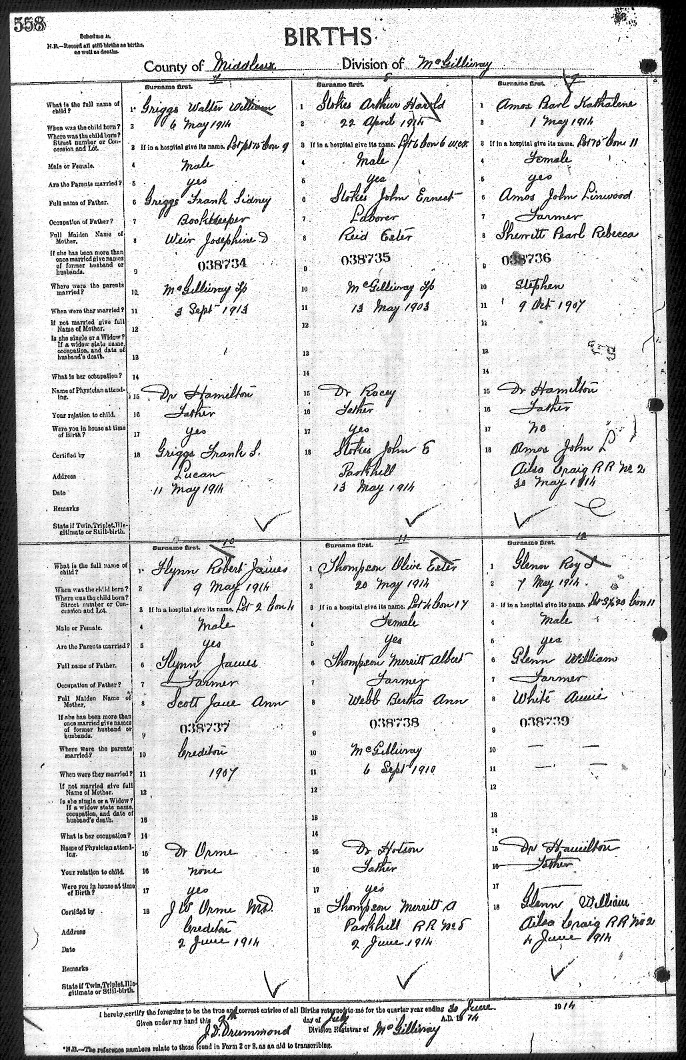 558
Schedule A.
N.B.—Record all still births as births, as well as deaths.
BIRTHS
County of Middlesex Division of McGillivray
7 8 9
Surname first. Surname first. Surname first.
What is the full name of child? 1 Griggs Walter William 1 Stokes Arthur Harold 1 Amos Pearl Kathalene
When was the child born? 2 6 May 1914 2 22 April 1914 2 1 May 1914
Where was the child born? Street number or Concession and Lot. 3 If in a hospital give its name. Lot pt 15 Con 9 3 If in a hospital give its name. Lot 6 Con 6 3 If in a hospital give its name. Lot 15 Con 11
Male or Female. 4 Male 4 Male 4 Female
Are the Parents married? 5 yes 5 yes 5 yes
Full name of Father. 6 Griggs Frank Sidney 6 Stokes John Ernest 6 Amos John Linwood
Occupation of Father? 7 Bookkeeper 7 Laborer 7 Farmer
Full Maiden Name of Mother. 8 Weir Josephine D 8 Reid Ester 8 Sherritt Pearl Rebecca
If she has been more than once married give names of former husband or husbands. 9 038734 9 038735 9 038736
Where were the parents married? 10 McGillivray Tp 10 McGillivray Tp 10 Stephen
When were they married? 11 3 Sept 1913 11 13 May 1903 11 9 Oct 1907
If not married give full Name of Mother. 12 12 12
Is she single or a Widow? If a widow state name, occupation, and date of husband's death. 13 13 13
What is her occupation? 14 14 14
Name of Physician attending. 15 Dr Hamilton 15 Dr Racey 15 Dr Hamilton
Your relation to child. 16 Father 16 Father 16 Father
Were you in house at time of Birth? 17 yes 17 yes 17 no
Certified by 18 Griggs Frank S. 18 Stokes John E 18 Amos John L
Address Lucan Parkhill Ailsa Craig RR No 2
Date 11 May 1914 13 May 1914 30 May 1914
Remarks
State if Twin, Triplet, Illegitimate or Still-birth.
10 11 12
Surname first. Surname first. Surname first.
What is the full name of child? 1 Flynn Robert James 1 Thompson Olive Ester 1 Glenn Roy S
When was the child born? 2 9 May 1914 2 20 May 1914 2 7 May 1914
Where was the child born? Street number or Concession and Lot. 3 If in a hospital give its name. Lot 2 Con 4 3 If in a hospital give its name. Lot 4 Con 17 3 If in a hospital give its name. Con 11
Male or Female. 4 Male 4 Female 4 Male
Are the Parents married? 5 yes 5 yes 5 yes
Full name of Father. 6 Flynn James 6 Thompson Merritt Albert 6 Glenn William
Occupation of Father? 7 Farmer 7 Farmer 7 Farmer
Full Maiden Name of Mother. 8 Scott Jane Ann 8 Webb Bertha Ann 8 White Annie
If she has been more than once married give names of former husband or husbands. 9 038737 9 038738 9 038739
Where were the parents married? 10 Crediton 10 McGillivray 10 — —
When were they married? 11 1907 11 6 Sept 1910 11 — —
If not married give full Name of Mother. 12 12 12
Is she single or a Widow? If a widow state name, occupation, and date of husband's death. 13 13 13
What is her occupation? 14 14 14
Name of Physician attending. 15 Dr Orme 15 Dr Hotson 15 Dr Hamilton
Your relation to child. 16 none 16 Father 16 Father
Were you in house at time of Birth? 17 yes 17 yes 17 —
Certified by 18 J W Orme M.D. 18 Thompson Merritt A 18 Glenn William
Address Crediton Parkhill RR No 5 Ailsa Craig RR No 2
Date 2 June 1914 2 June 1914 4 June 1914
Remarks
State if Twin, Triplet, Illegitimate or Still-birth.
I hereby certify the foregoing to be the true and correct entries of all Births returned to me for the quarter year ending 30 June 1914
Given under my hand this 9th day of July A.D. 1914
J.D. Drummond Division Registrar of McGillivray
*N.B.—The reference numbers relate to those found in Form 2 or 3, as an aid to transcribing.